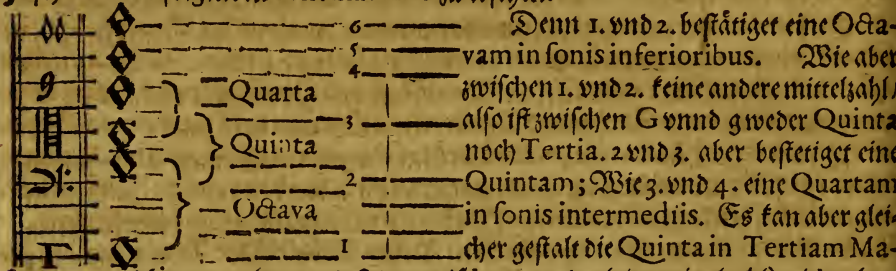 6
5
4
Quarta
3
Quinta
2
Octava
1
Denn 1. vnd 2. bestätiget eine Octa-
vam in sonis inferioribus. Wie aber
zwischen 1. vnd 2. keine andere mittelzahl /
also ist zwischen G vnnd g weder Quinta
noch Tertia. 2 vnd 3. aber bestetiget eine
Quintam; Wie 3. vnd 4. eine Quartam
in sonis intermediis. Es kan aber glei-
cher gestalt die Quinta in Tertiam Ma-